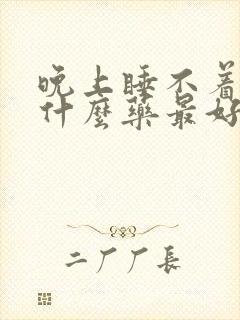 晚上睡不着
什麼藥最好
二厂厂長